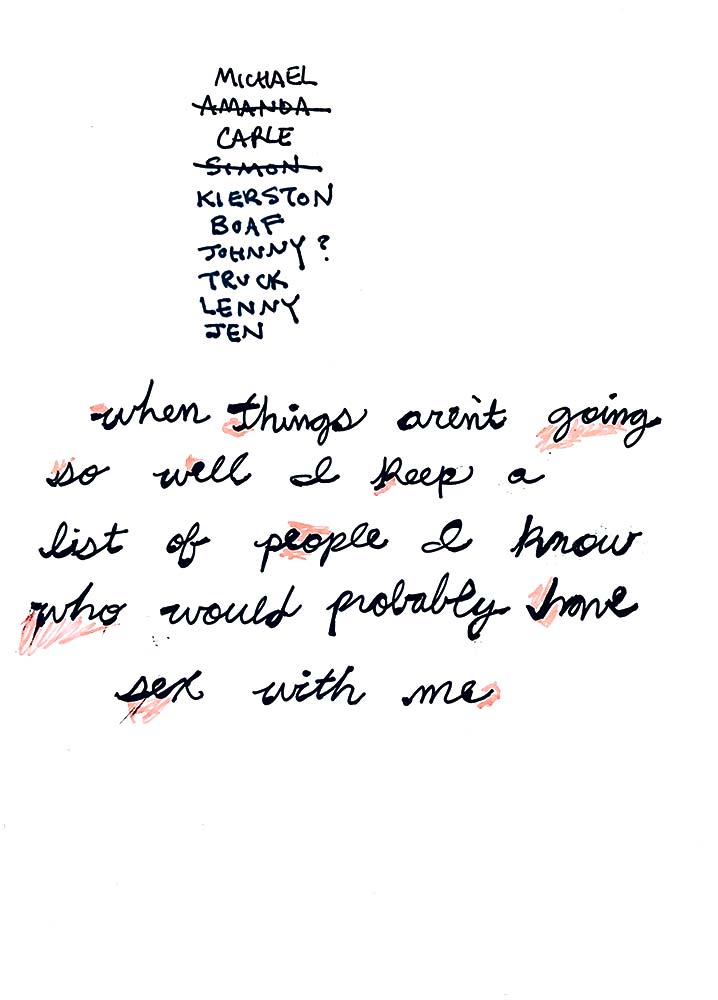 MICHAEL
AMANDA
CARLE
SIMON
KIERSTON
BOAF
JOHNNY?
TRUCK
LENNY
JEN
when things aren't going
so well I keep a
list of people I know
who would probably have
sex with me